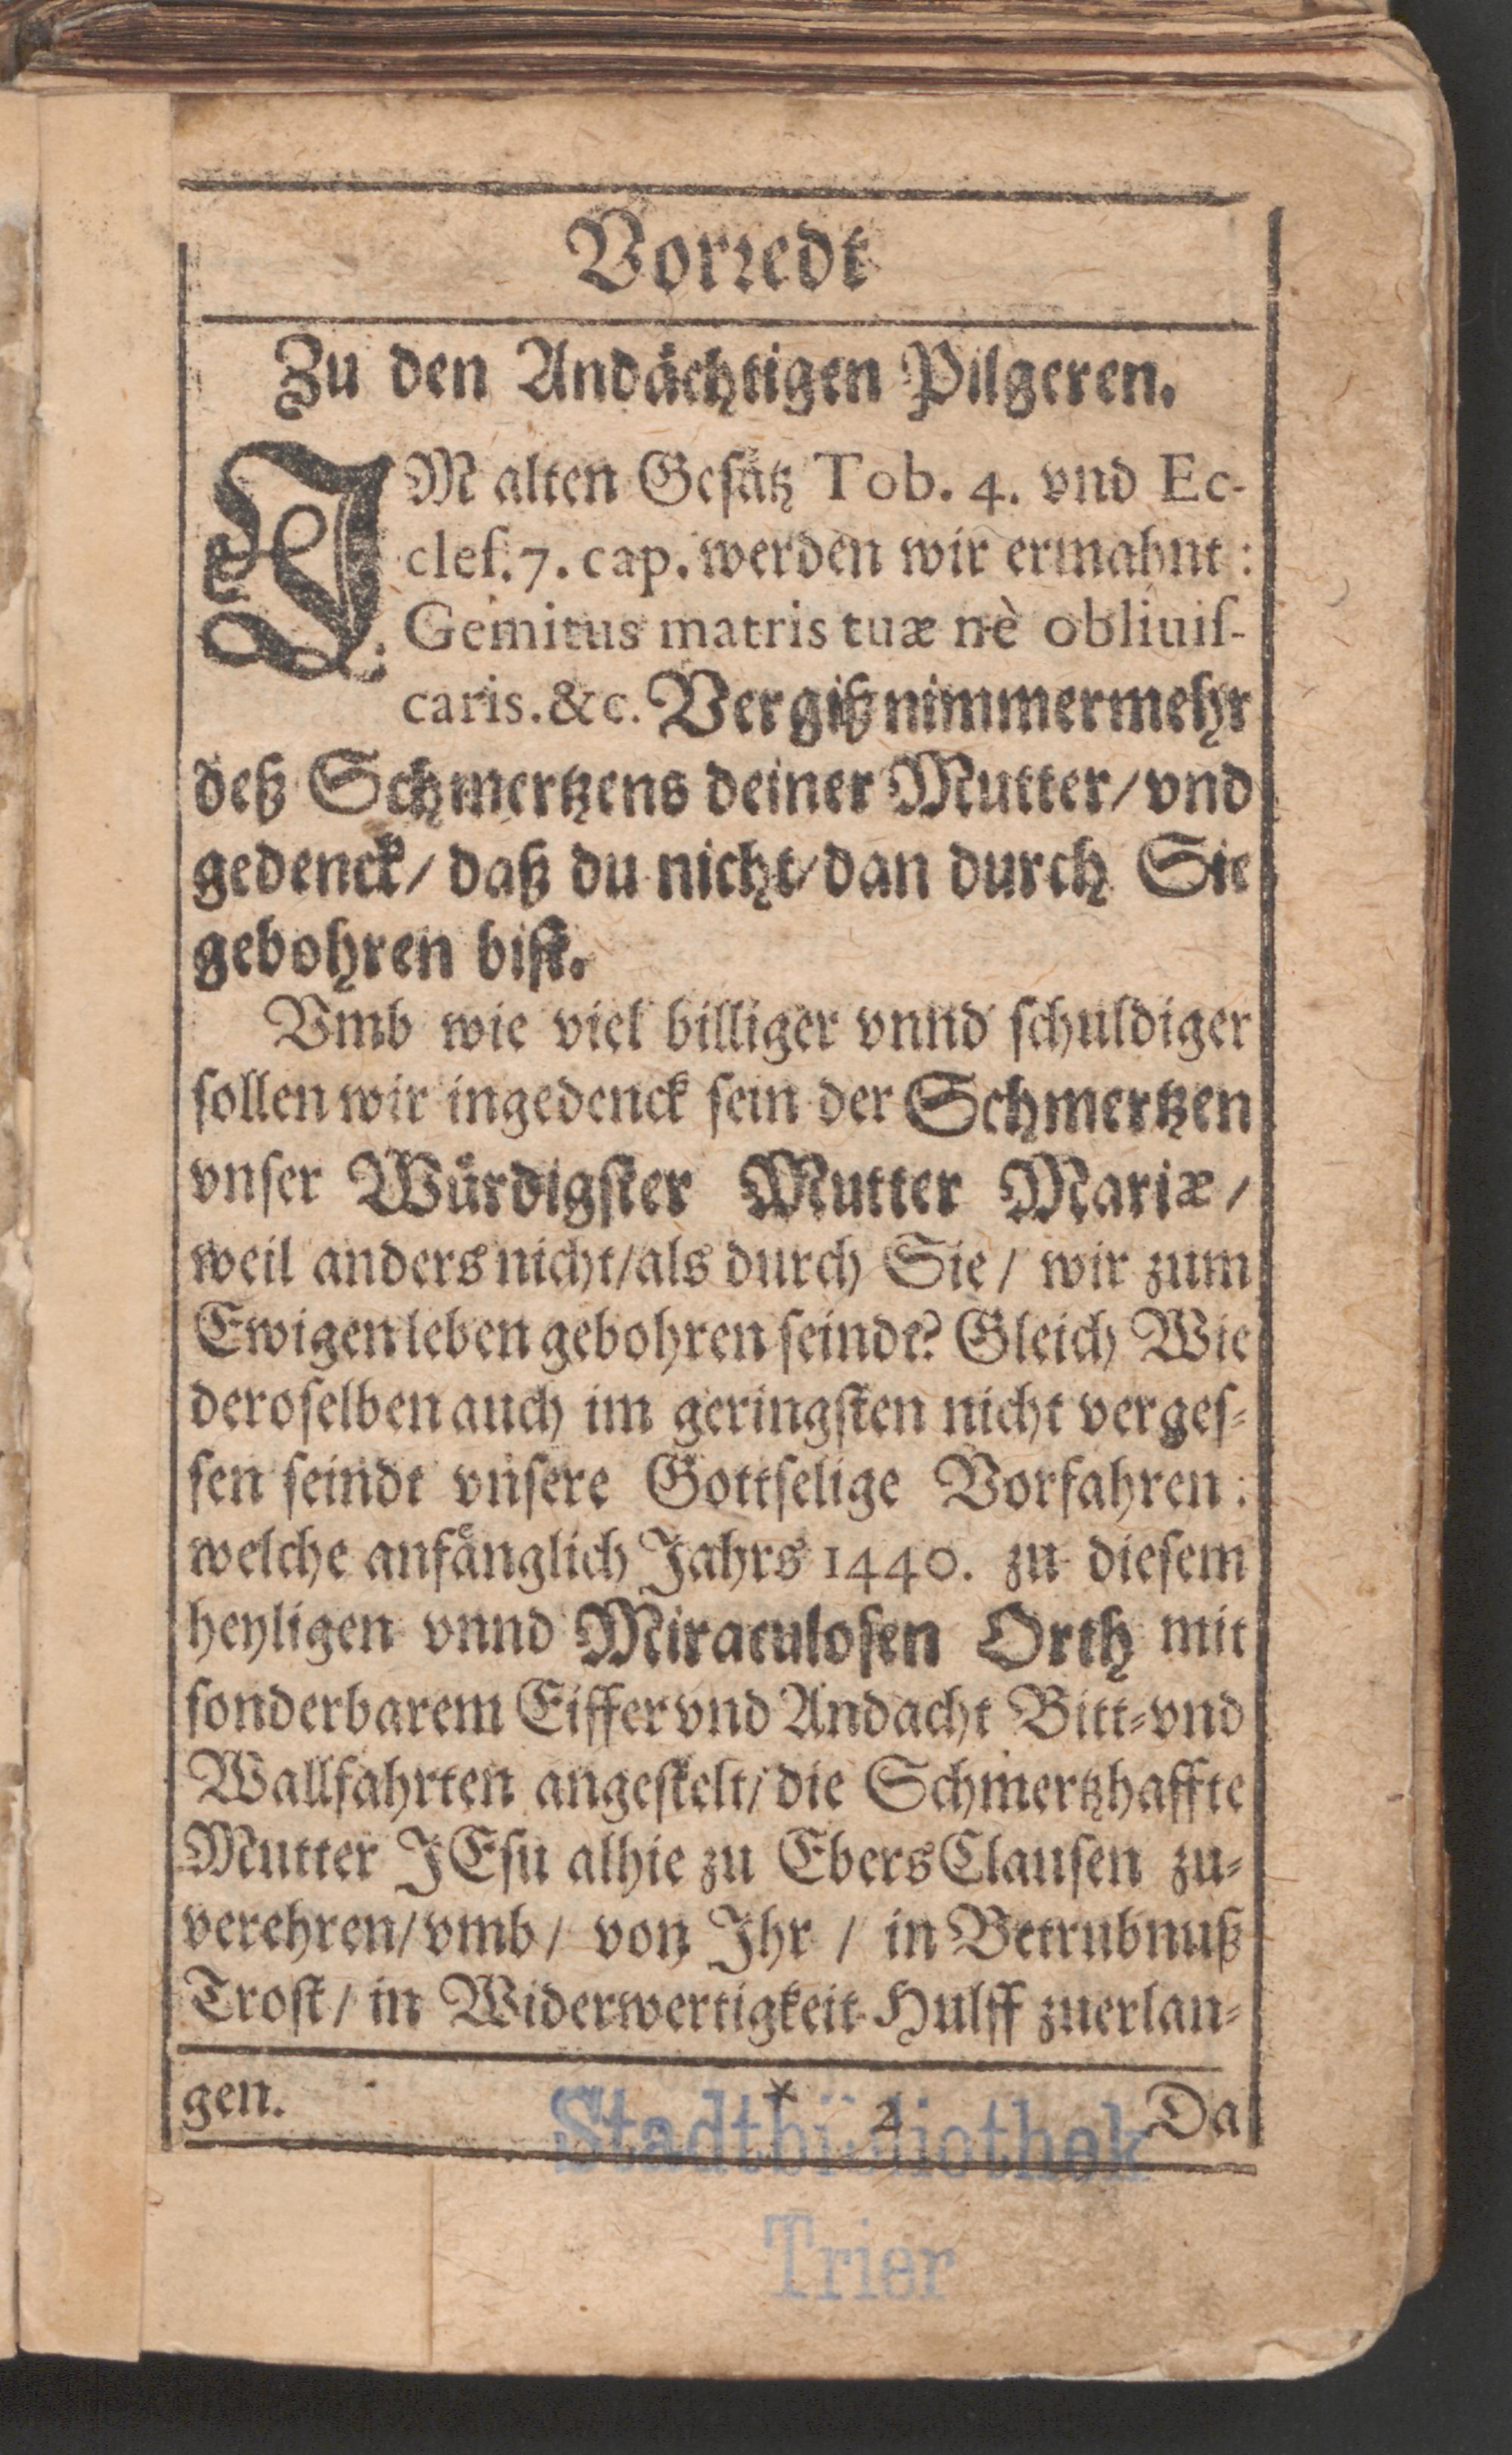 Vorredt
Zu den Andächtigen Pilgeren.
IM alten Gesätz Tob. 4. vnd Ec-
cleſ. 7. cap. werden wir ermahnt :
Gemitus matris tuæ nè obliuiſ-
caris. &c. Vergiß nimmermehr
deß Schmertzens deiner Mutter / vnd
gedenck / daß du nicht / dan durch Sie
gebohren biſt.
Vmb wie viel billiger vnnd ſchuldiger
ſollen wir ingedenck ſein der Schmertzen
vnſer Würdigſter Mutter Mariæ /
weil anders nicht / als durch Sie / wir zum
Ewigen leben gebohren ſeindt? Gleich Wie
deroſelben auch im geringſten nicht vergeſ-
ſen ſeindt vnſere Gottſelige Vorfahren :
welche anfänglich Jahrs 1440. zu dieſem
heyligen vnnd Miraculoſen Orth mit
ſonderbarem Eiffer vnd Andacht Bitt- vnd
Wallfahrten angeſtelt / die Schmertzhaffte
Mutter JEſu alhie zu EbersClauſen zu-
verehren / vmb / von Ihr / in Betrubnuß
Troſt / in Widerwertigkeit Hulff zuerlan-
gen. * 2 Da
Stadtbibliothek
Trier